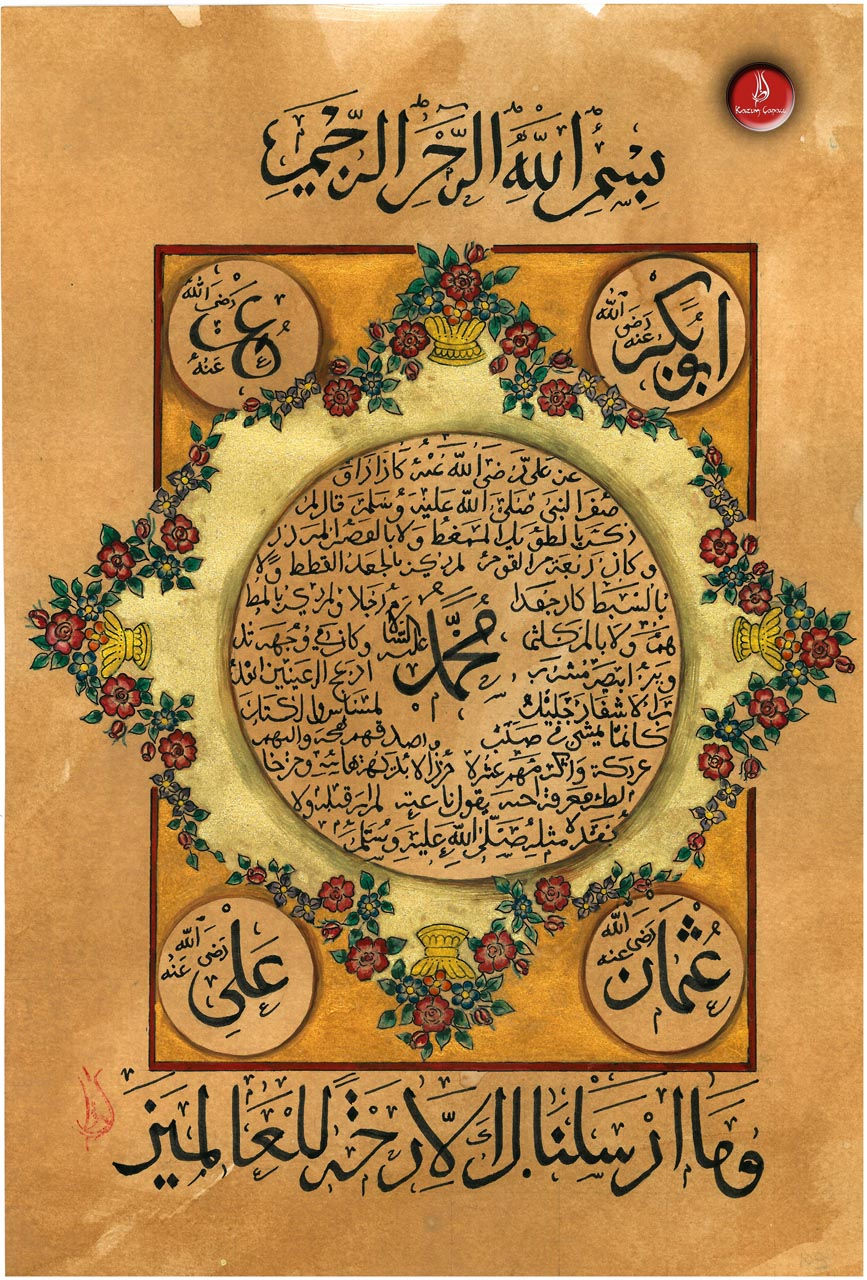 Kazım Çapacı
بِسْمِ اللّٰهِ الرَّحْمٰنِ الرَّحِيمِ
ابوبكر رَضِىَ اللّٰه عنه
عمر رَضِىَ اللّٰه عَنْهُ
عن على رضى الله عنه كان اذا و
صف النبى صلى الله عليه وسلم قال لم
يكن بالطويل الممغط ولا بالقصير المتردد
وكان ربعة من القوم لم يكن بالجعد القطط ولا
بالسبط كان جعدا رجلا ولم يكن بالمط
هم ولا بالمكلثم وكان فى وجهه تد
محمد عليه السلام
وير ابيض مشرب ادعج العينين اهد
ب الاشفار جليل المشاش والكتد
كانما يمشى فى صبب
واصدق
عريكة واكرمهم عشرة من رآه بديهة هابه ومن خا
لطه معرفة احبه يقول ناعته لم ار قبله ولا
بعده مثله صلى الله عليه وسلم
عُثمان رَضى اللّٰه عنه
عَلِى رَضى اللّٰه عنه
وَمَا اَرْسَلْنَاكَ اِلَّا رَحْمَةً لِلْعَالَمِينَ